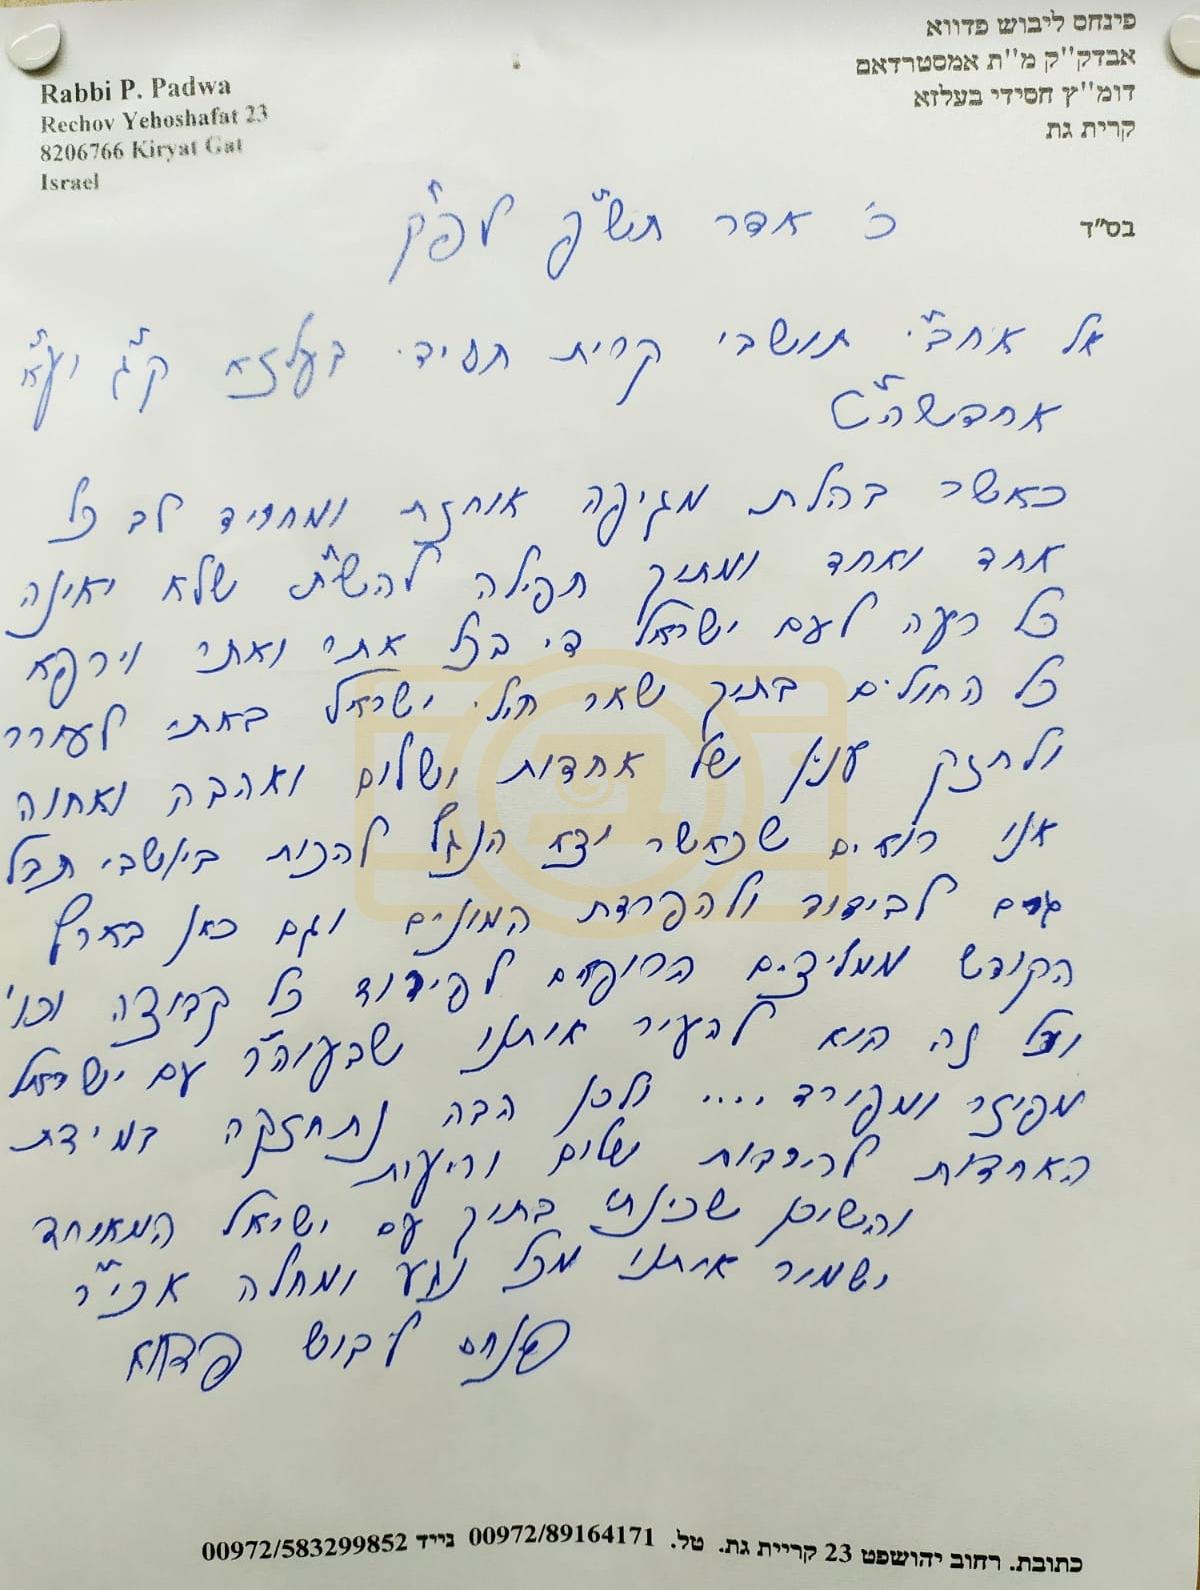 פינחס ליבוש פדווא
אבדק"ק מ"ת אמסטרדאם
דומ"ץ חסידי בעלזא
קרית גת
Rabbi P. Padwa
Rechov Yehoshafat 23
8206766 Kiryat Gat
Israel
בס"ד
כ' אדר תש"פ לפ"ק
אל אחב"י תושבי קרית חסידי בעלזא ק"ג יע"א
אחדשה"ט
כאשר בהלת מגיפה אוחזת ומחריד לב כל
אחד ואחד ומתוך תפילה להש"ת שלא יאונה
כל רעה לעם ישראל די בכל אתר ואתר וירפא
כל החולים בתוך שאר חולי ישראל באתי לעורר
ולחזק ענין של אחדות ושלום ואהבה ואחוה
אנו רואים שכאשר יצא הנגף להכות ביושבי תבל
גרם לבידוד ולהפרדת המונים וגם כאן בארץ
הקודש ממליצים הרופאים לפירוד כל קבוצה וכו'
ועל זה הוא להעיר אותנו שבעוה"ר עם ישראל
מפוזר ומפורד .... ולכן הבה נתחזקה במידת
האחדות להרבות שלום וריעות
והשוכן שכינתו בתוך עם ישראל המאוחד
ישמור אותנו מכל נגע ומחלה אכי"ר
פנחס ליבוש פדווא
כתובת. רחוב יהושפט 23 קריית גת. טל. 00972/89164171 נייד 00972/583299852